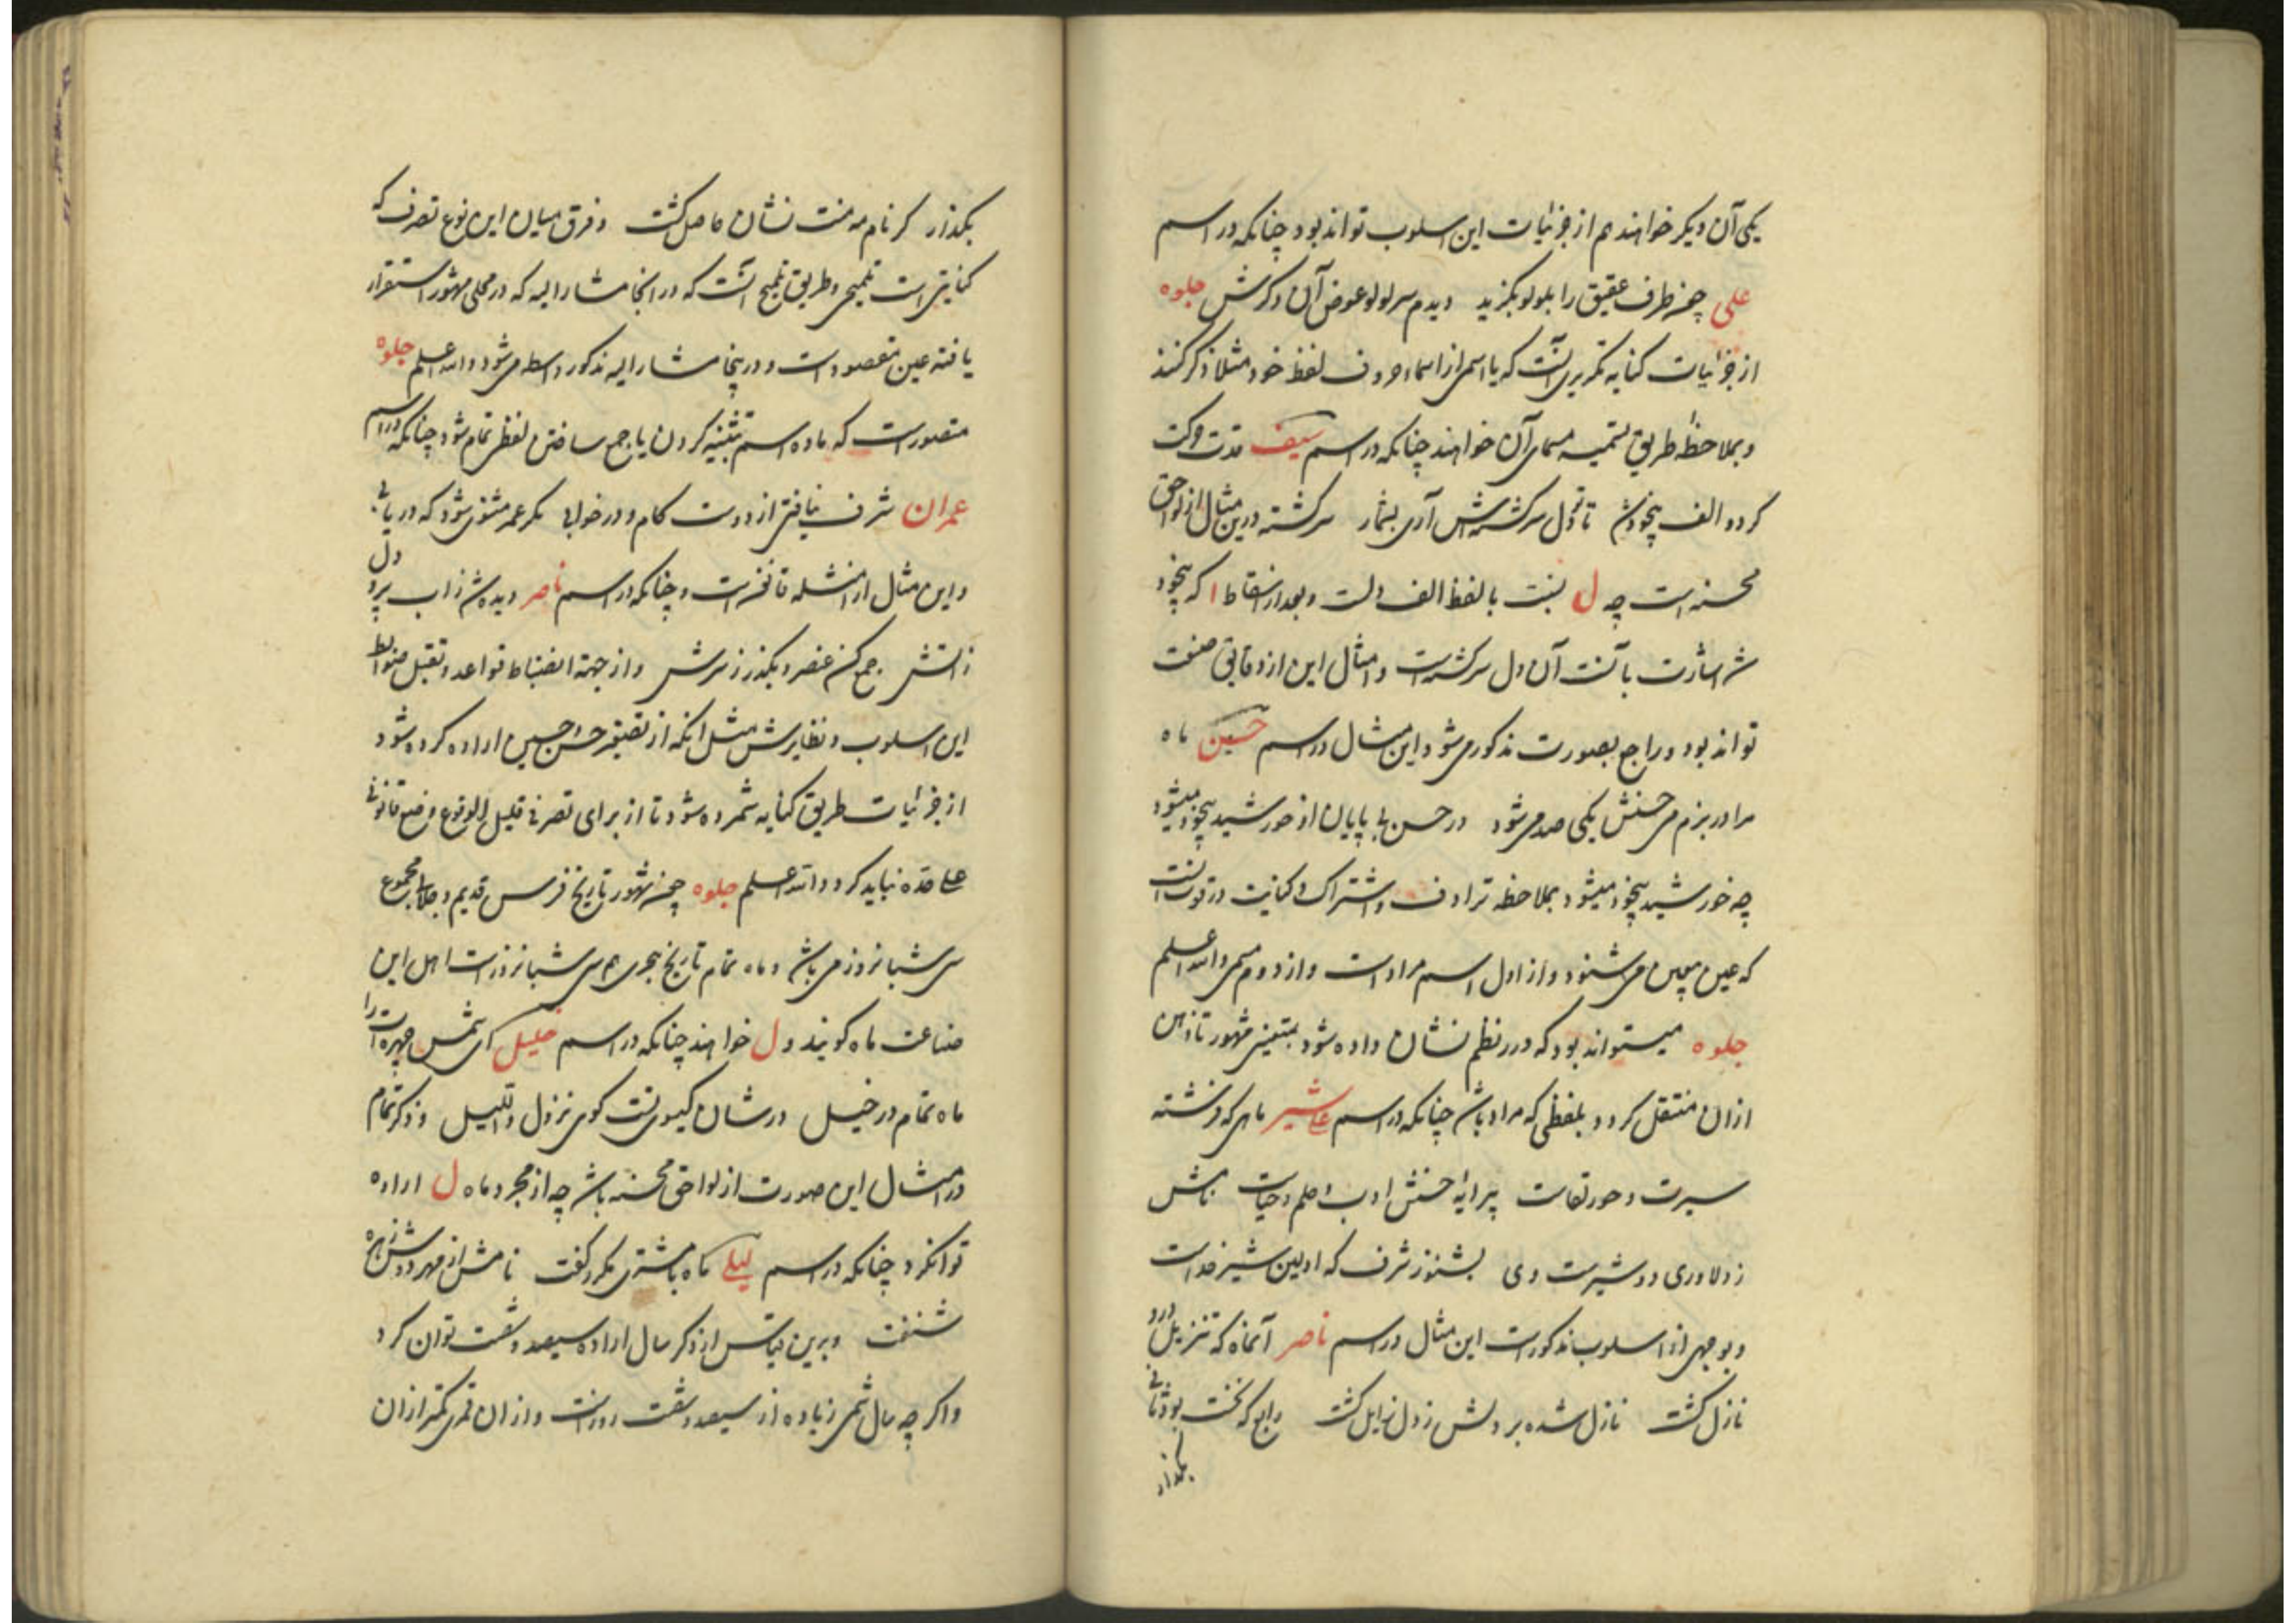 یکی آن دیگر خواهند هم از جزئیات این اسلوب تواند بود چنانکه در اسم
علی چونه طرف عقیق را بلولو بگزید دیدم سر لولو عوض آن و کرش جلوه
از جزئیات کنایه ترکیبی آنست که یا اسمی از اسماء حروف لفظ خود مثلا ذکر کنند
و بملاحظه طریق تسمیه مسمای آن خواهند چنانکه در اسم سیف قدت وکت
کرد و الف بیخود شد تا تو دل سرکشته اش آری بشمار سرکشته درین مثال از لواحق
محسنه است چه ل بنسبت بالفظ الف دلست و بعد از اسقاط ا که بیخود
شد اشارت بآنست آن دل سرکشته است و امثال این از دقایق صنعت
تواند بود و راجع بصورت مذکور می شود این مثال در اسم حسین ماه
مرا در بزم می حسنش یکی صد می شود در حسن بی پایان او خورشید بیخود میشود
چه خورشید بیخود میشود بملاحظه ترادف و اشتراک و کنایت در قوت آنست
که عین بیعین می شنود و از اول اسم مراد است و از دوم مسمی والله اعلم
جلوه میتواند بود که در نظم نشان داده شود بمتعینی مشهور تا ذهن
ازان منتقل کردد بلفظی که مراد باشد چنانکه در اسم علیشیر ماهی که فرشته
سیرت و حور لقاست پیرایه حسنش ادب و حلم و حیاست نامش
ز دلاوری دو شیرست وی بشنو ز شرف که اولین شیر خداست
و بوجهی از اسلوب مذکورست این مثال در اسم ناصر آنماه که تنزیل درو
نازل کشت نازل شده بر دلش ز دل زایل کشت رابع که نخست بود ثانی
بگذار
بگذار کر نام مه منت نشان حاصل کشت و فرق میان این نوع تصرف که
کنایتی است تلمیحی و طریق تلمیح آنست که در انجا مشار الیه که در محلی مشهور استقرار
یافته عین مقصود است و درینجا مشار الیه مذکور واسطه می شود والله اعلم جلوه
متصورست که ماده اسم بتثنیه کردن یا جمع ساختن لفظی تمام شود چنانکه در اسم
عمران شرف نیافتی از دوست کام و در خوابی مکر عمر مثنی شود که دریابی
و این مثال از امثله فایقه است و چنانکه در اسم ناصر دیده شد ز آب پر و دل
ز آتش جمع کن عنصر و بگذر ز سرش و از جهة انضباط قواعد و تقلیل ضوابط
این اسلوب و نظایرش مثل آنکه از تصغیر حسن حسین اراده کرده شود
از جزئیات طریق کنایه شمرده شود تا از برای تصرفی قلیل الوقوع وضع قانونی
علی حده نباید کرد والله اعلم جلوه چونه شهور تاریخ فرس قدیم و جلالی مجموع
سی شبانروز می باشد و ماه تمام تاریخ هجری هم سی شبانروزست اهل این
صناعت ماه کویند و ل خواهند چنانکه در اسم خلیل ای شمس چهره ات را
ماه تمام در خیل در شان کیسوی تست کوی نزول واللیل و ذکر تمام
در امثال این صورت از لواحق محسنه باشد چه از مجرد ماه ل اراده
توانکرد چنانکه در اسم لیلی ماه با مشتری مکرر کفت نامش از مهر و دوش زهره
شنفت و برین قیاس از ذکر سال اراده سیصد و شصت توان کرد
و اکر چه سال شمسی زیاده از سیصد و شصت روزست و ازان قمری کمتر ازان